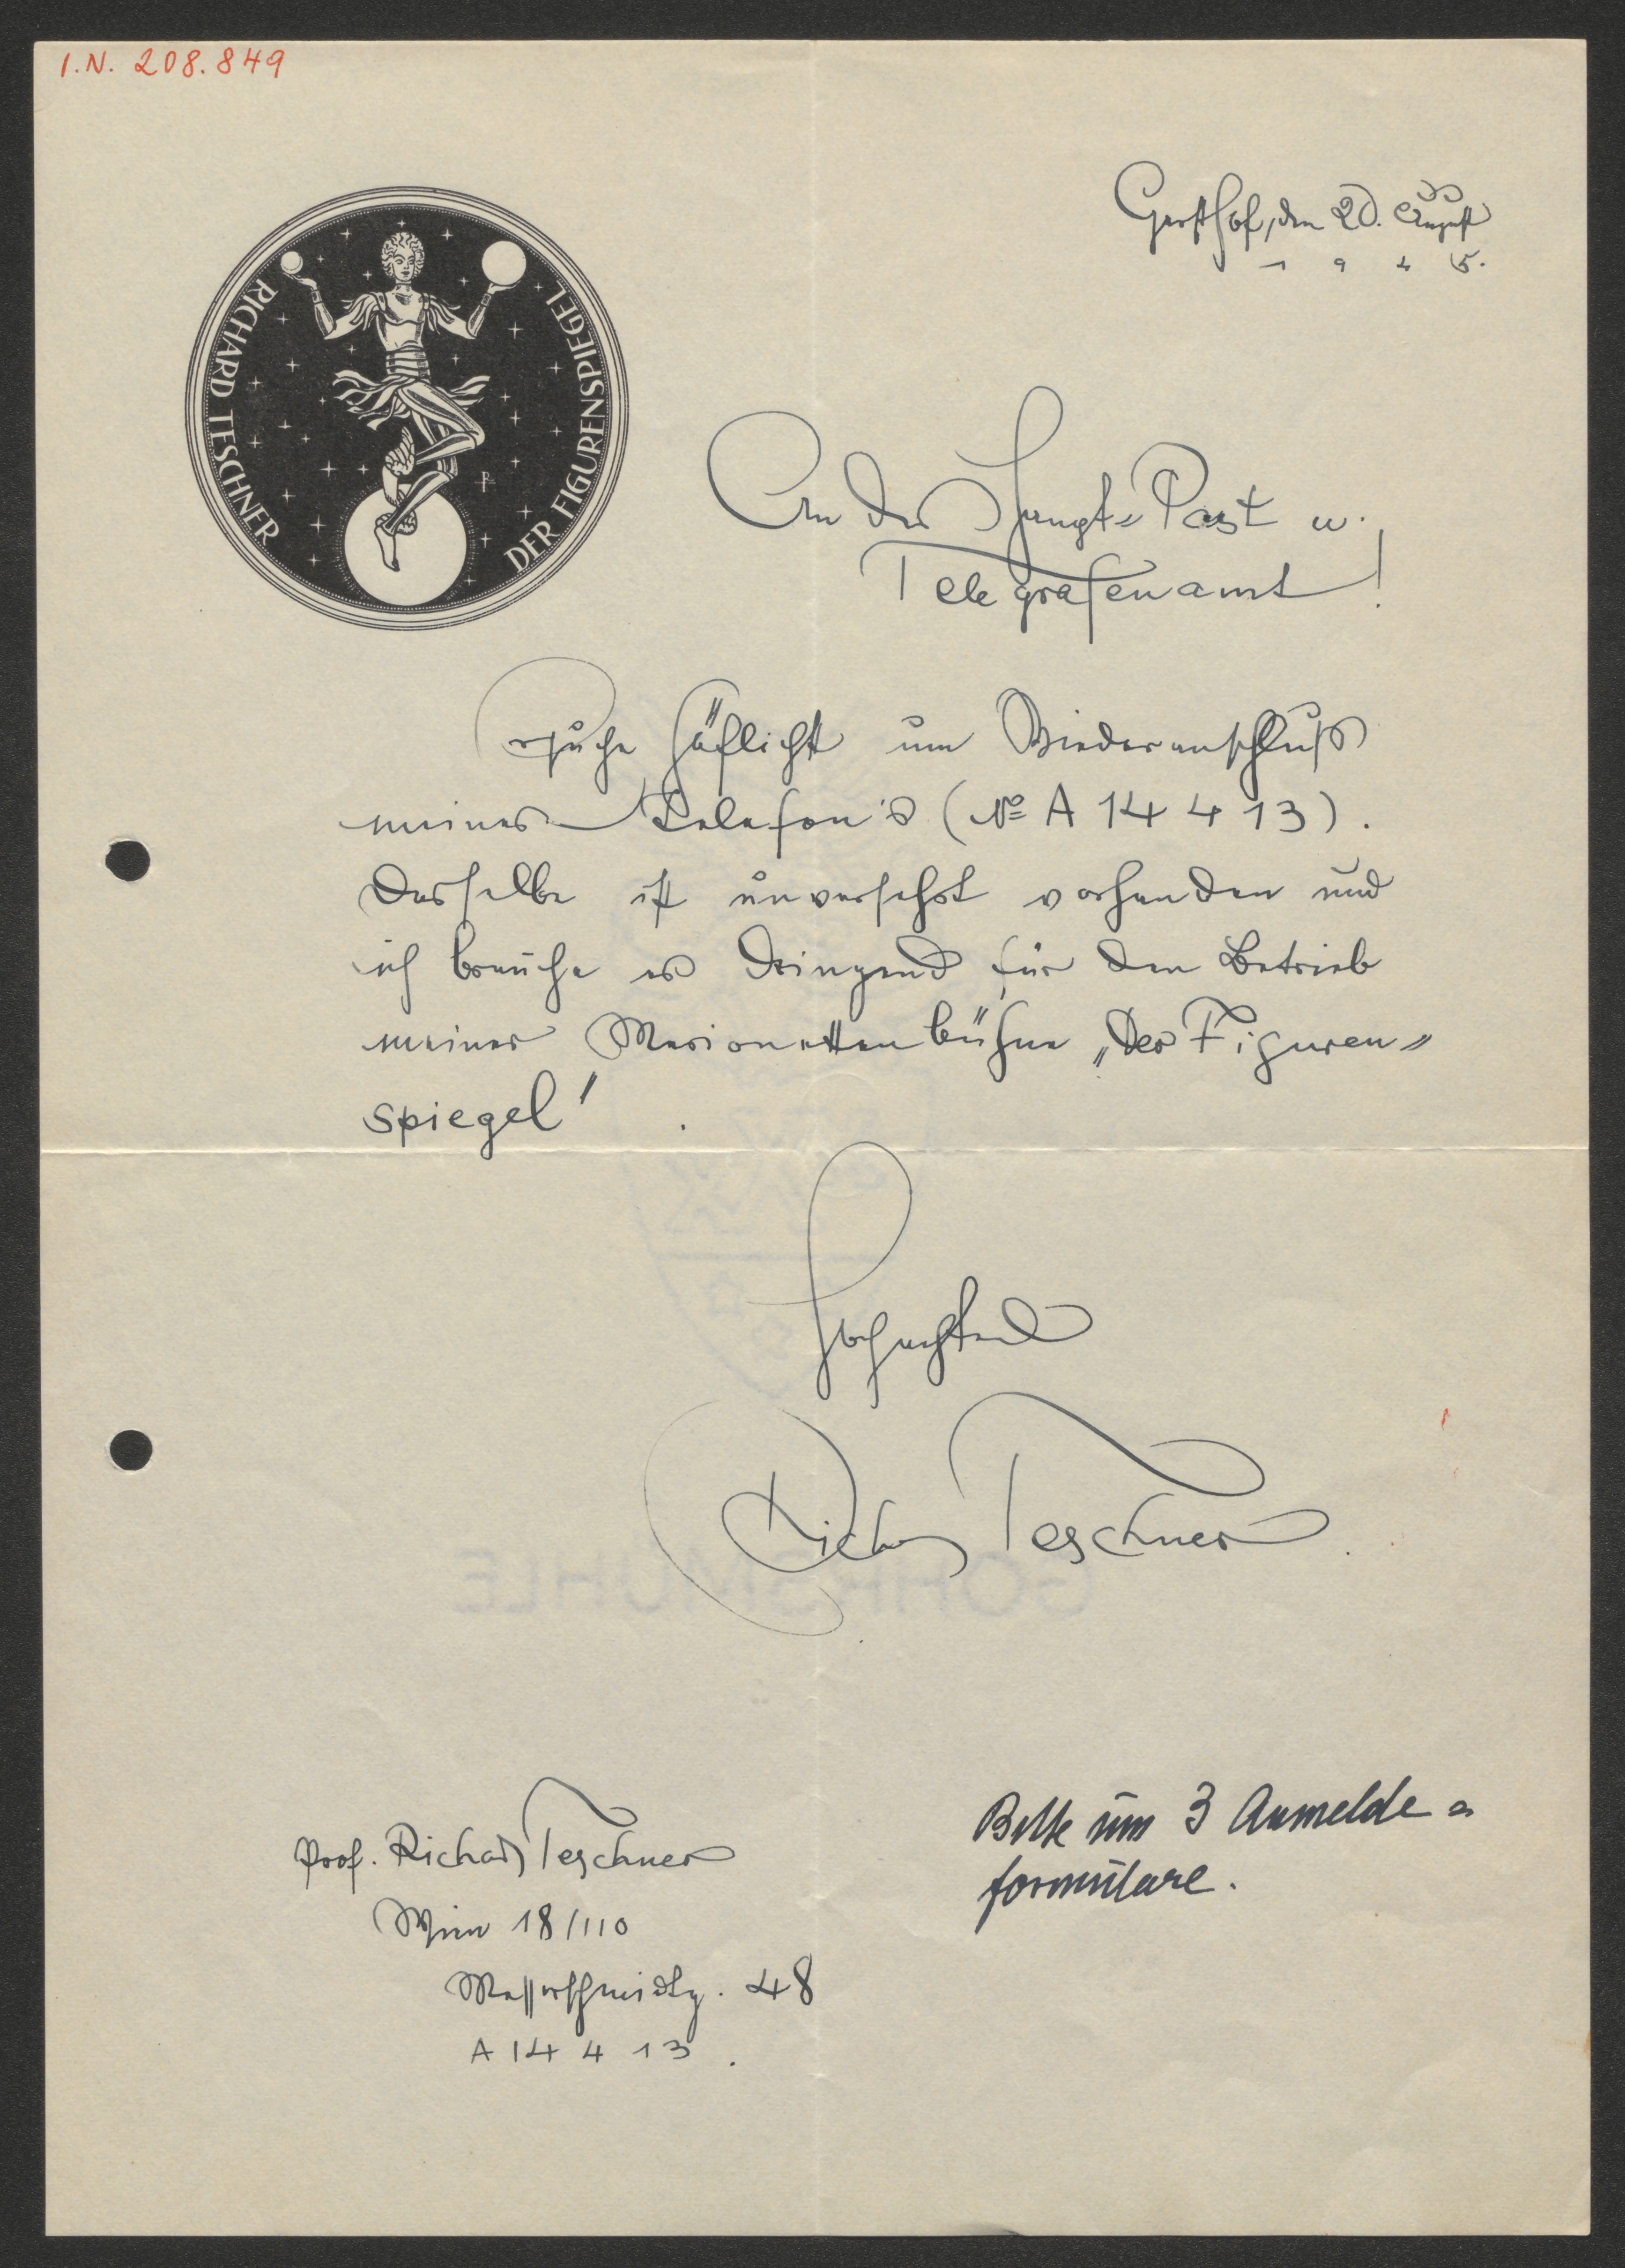 I.N. 208.849
RICHARD TESCHNER
DER FIGURENSPIEGEL
Gersthof, den 20. August
1945.
An das Haupt- Post u.
Telegrafenamt!
Ersuche höflichst um Wiederanschluß
meines Telefon's (№ A 14 4 13).
Dasselbe ist unversehrt vorhanden und
ich brauche es dringend für den Betrieb
meiner Marionettenbühne „Der Figuren=
spiegel"
Hochachtend
Richard Teschner.
Prof. Richard Teschner
Wien 18/110
Messerschmidtg. 48
A 14 4 13.
Bitte um 3 Anmelde=
formulare.
GOHRSMÜHLE